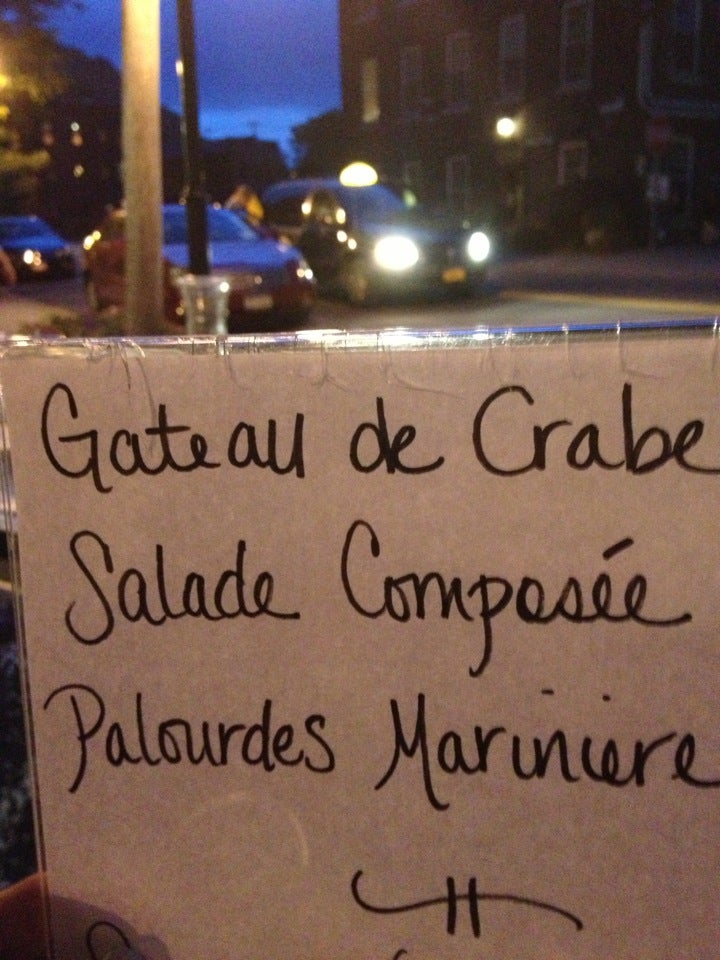 Gateau de Crabe
Salade Composée
Palourdes Mariniere